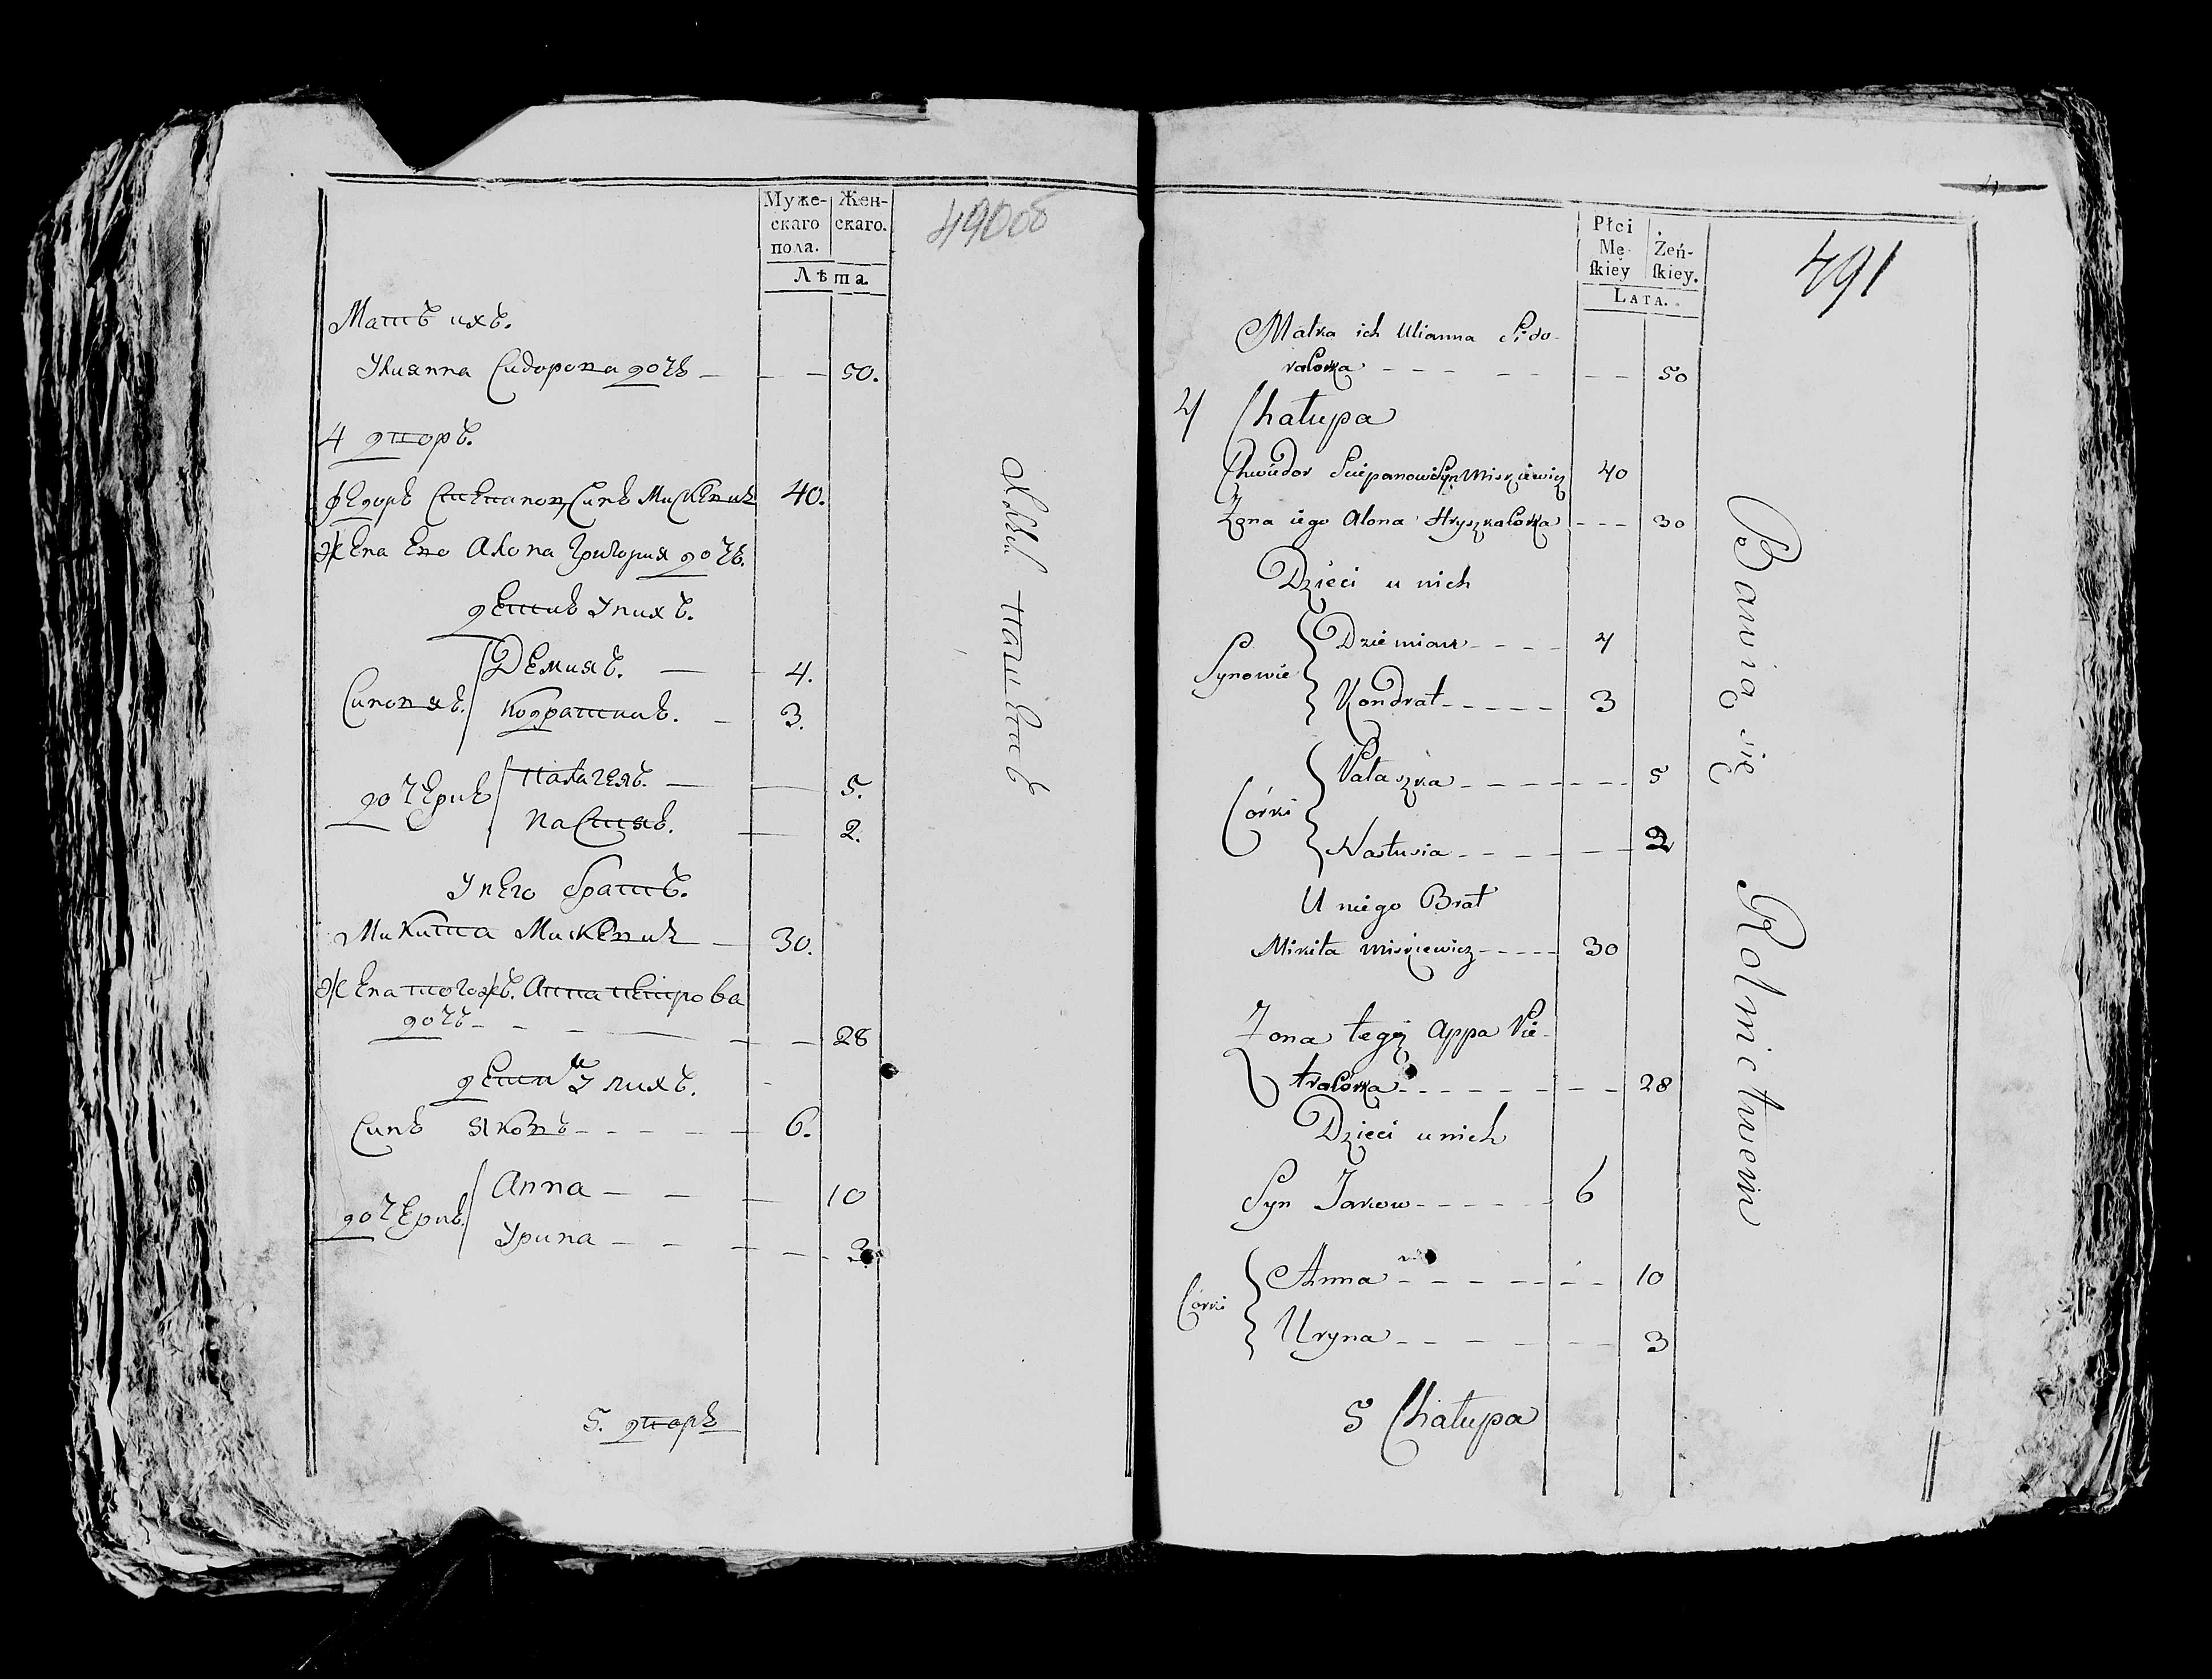 Муже-
скаго
пола.
Жен-
скаго.
Лѣта
490об
Мать ихъ.
Улианна Сидорова дочь — — — 50.
4 дворъ.
Федоръ Степановъ Синъ Мискевичъ 40.
Жена Его Алона Григория дочь.
дети У нихъ.
Синовя
Демиянъ. — 4.
Кодратий. — 3.
дочери
Палагея. — 5.
Настя. — 2.
У него братъ.
Микита Мискевичъ — 30.
Жена тогожъ. Анна Петрова
дочь — — — 28
дети У нихъ.
Синъ Яковъ — — — 6.
дочери
Анна — — — 10
Урина — — — 3.
5. дворъ
Płci
Mę-
skiey
Żeń-
skiey.
Lata.
491
Matka ich Ulianna Sido-
rakowka — — — 50
4 Chałupa
Chwiedor Sciepanow Syn Miskiewicz 40
Żona iego Alona Hryszkalowka - - - 30
Dzieci u nich
Synowie
Dziemian - - - - 4
Kondrat - - - - - 3
Córki
Pałaszka - - - - - - - 5
Nastusia - - - - - - 2
U niego Brat
Mikita Miskiewicz - - - - - 30
Żona tegoż Anna Pie-
tralowka - - - - - - - 28
Dzieci u nich
Syn Jakow - - - - - 6
Córki
Anna - - - - - - - - 10
Uryna - - - - - - 3
5 Chałupa
Bawią się Rolnictwem